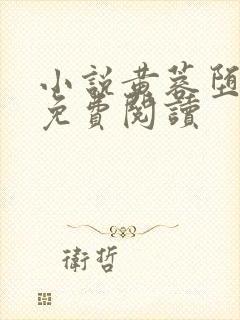 小說黃蓉堕
免費閱讀
衛哲